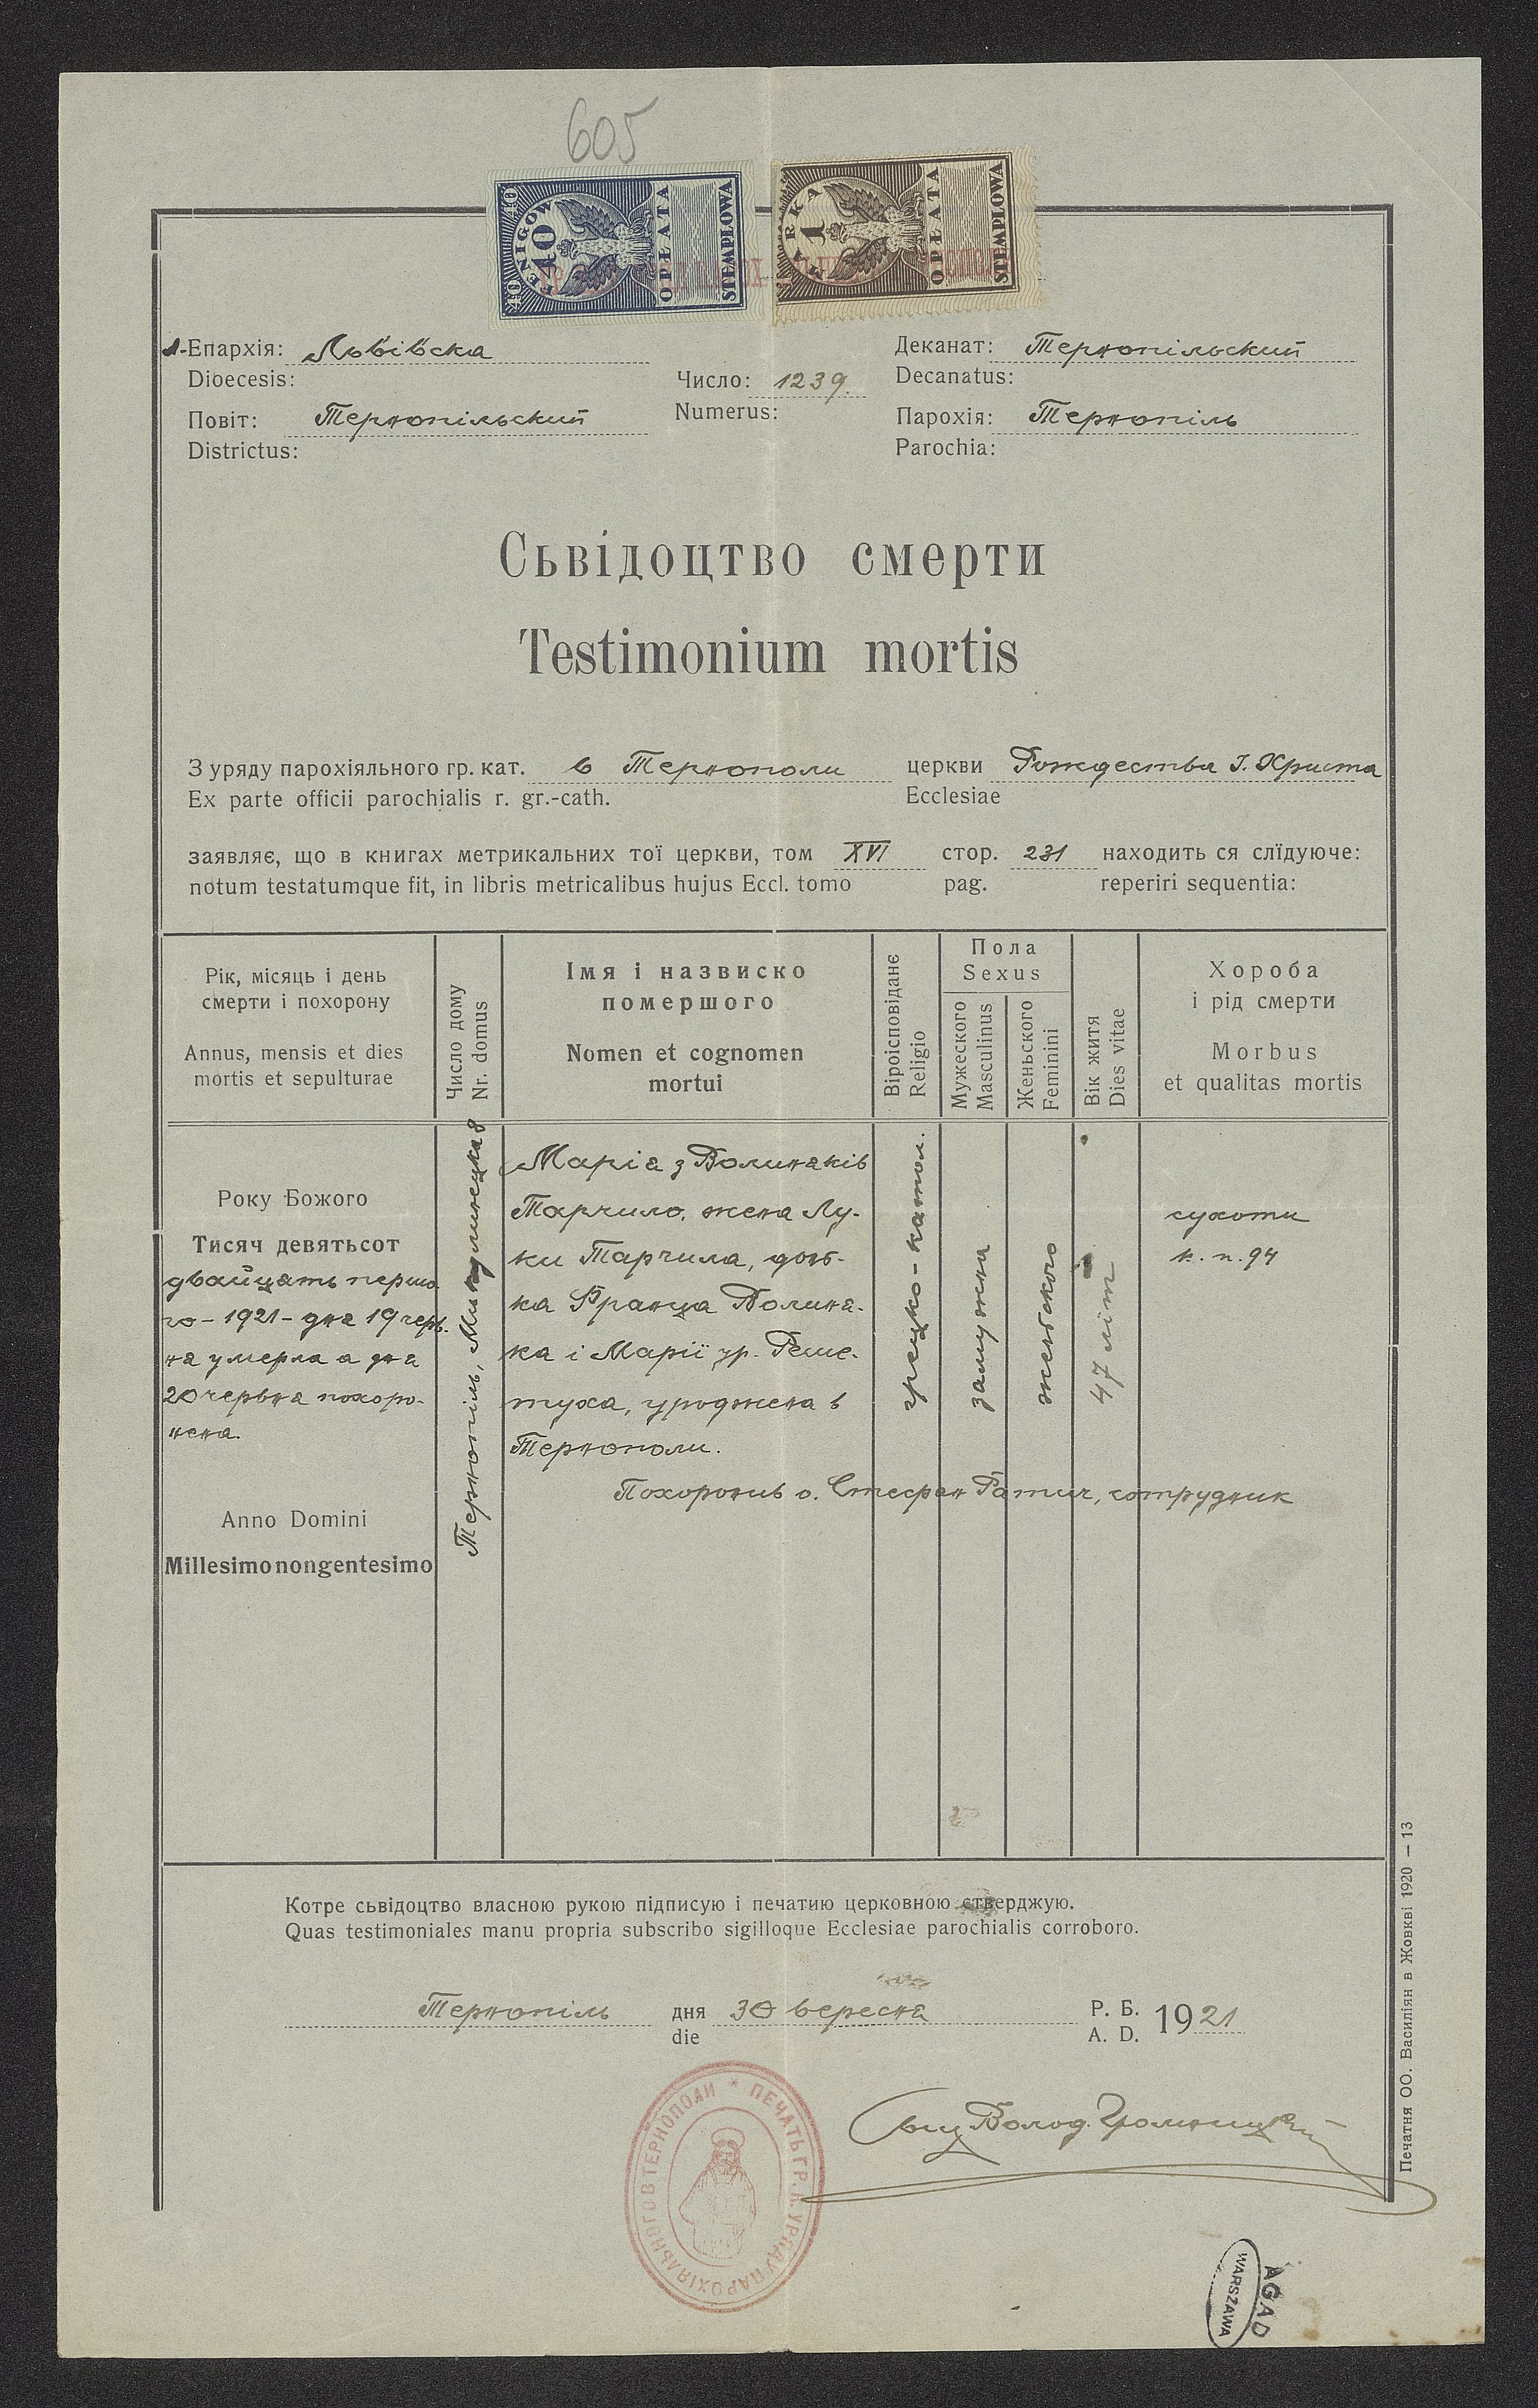 605
40 40
FENIGÓW
40
OPŁATA
STEMPLOWA
MARKA
1
OPŁATA
STEMPLOWA
Епархія: Львівска
Dioecesis:
Повіт: Тернопільский
Districtus:
Число: 1239.
Numerus:
Деканат: Тернопільский
Decanatus:
Парохія: Тернопіль
Parochia:
Сьвідоцтво смерти
Testimonium mortis
З уряду парохіяльного гр. кат. в Тернополи церкви Рождества І. Христа
Ex parte officii parochialis r. gr.-cath. Ecclesiae
заявляє, що в книгах метрикальних тої церкви, том XVI стор. 231 находить ся слїдуюче:
notum testatumque fit, in libris metricalibus hujus Eccl. tomo pag. reperiri sequentia:
Рік, місяць і день
смерти і похорону
Annus, mensis et dies
mortis et sepulturae
Число дому
Nr. domus
Імя і назвиско
помершого
Nomen et cognomen
mortui
Віроісповіданє
Religio
Пола
Sexus
Мужеского
Masculinus
Женьского
Feminini
Вік житя
Dies vitae
Хороба
і рід смерти
Morbus
et qualitas mortis
Року Божого
Тисяч девятьсот
двайцять першо
го - 1921 - дня 19 черв.
ня умерла а дня
20 червня похоро-
нена.
Anno Domini
Millesimo nongentesimo
Тернопіль, Микулинецка 8
Марія з Волиняків
Тарчило, жена Лу-
ки Тарчила, доч-
ка Франца Волиня-
ка і Марії ур. Реше-
туха, уроджена в
Тернополи.
грецко-катол.
замужна
женьского
47 літ
сухоти
к. п. 94
Похоронив о. Стефан Ратич, сотрудник
Котре сьвідоцтво власною рукою підписую і печатию церковною стверджую.
Quas testimoniales manu propria subscribo sigilloque Ecclesiae parochialis corroboro.
Тернопіль дня 30 вересня Р. Б. 1921
die A. D.
Волод. Громницкий
ПЕЧАТЬ ГР. К. УРЯДУ ПАРОХІЯЛЬНОГО В ТЕРНОПОЛИ *
Печатня ОО. Василіян в Жовкві 1920 — 13
AGAD
WARSZAWA